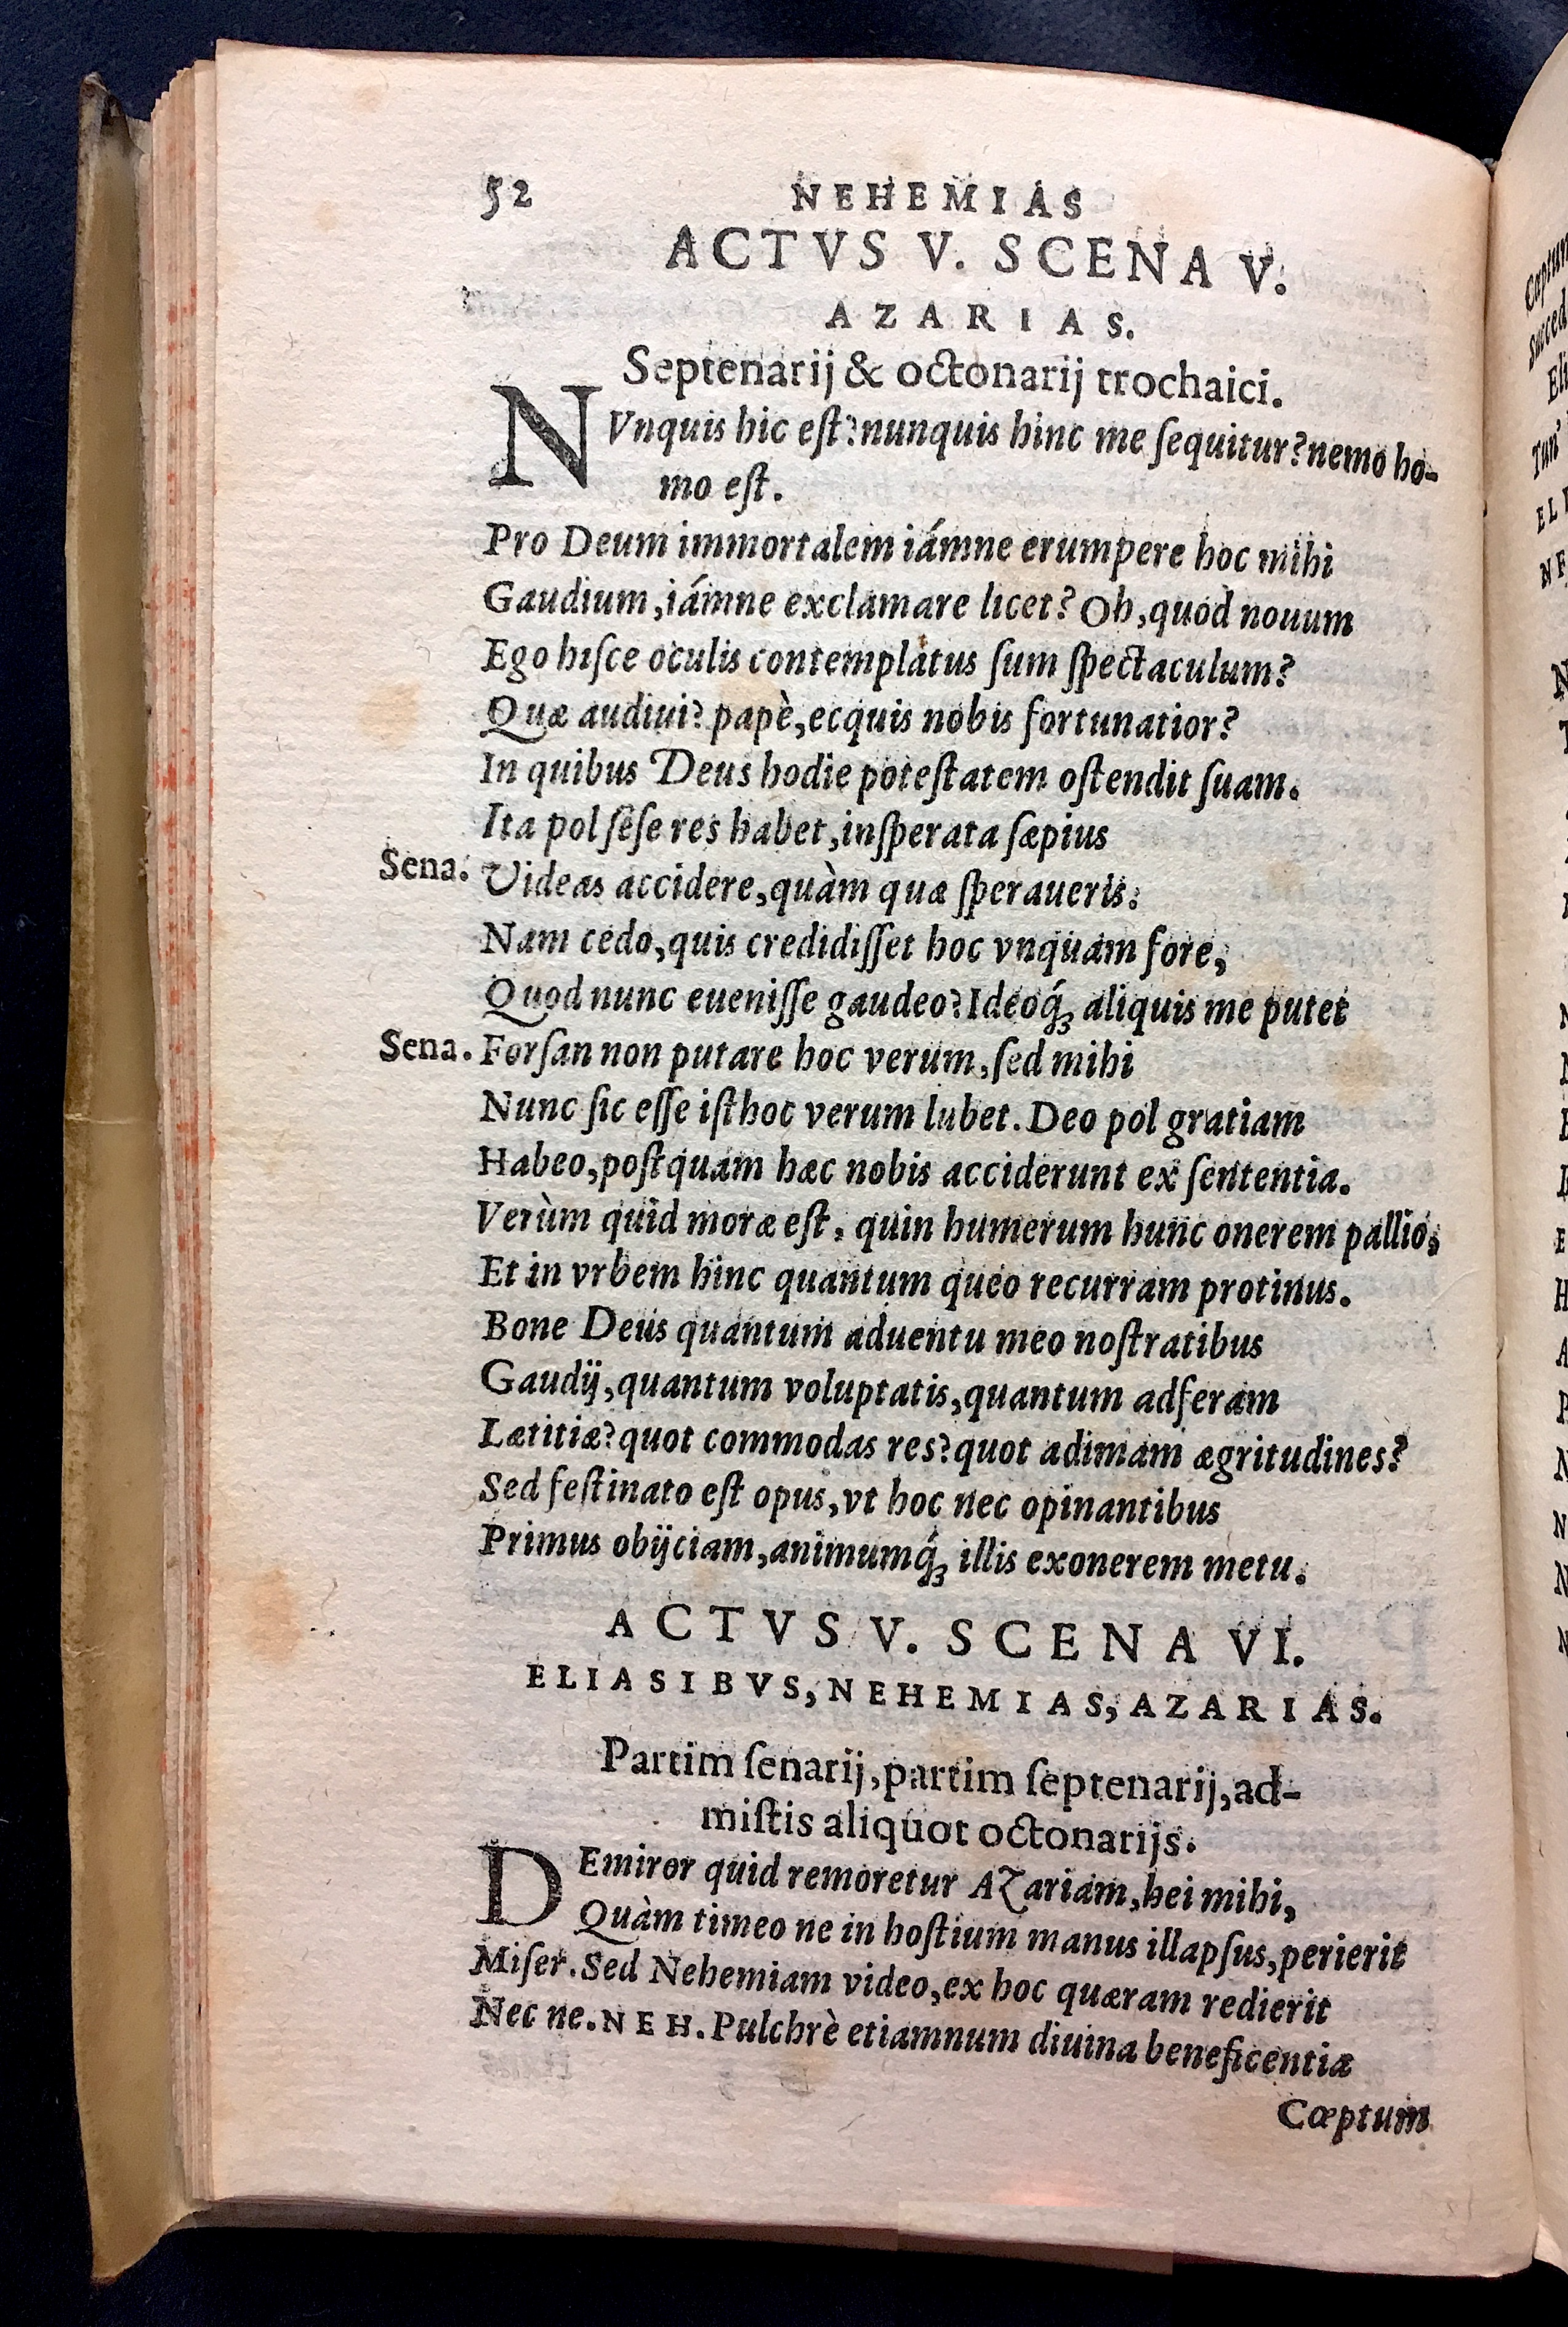 52 NEHEMIAS
ACTVS V. SCENA V.
AZARIAS.
Septenarij & octonarij trochaici.
NVnquis hic eſt? nunquis hinc me ſequitur? nemo ho-
mo eſt.
Pro Deum immortalem iámne erumpere hoc mihi
Gaudium, iámne exclamare licet? Oh, quòd nouum
Ego hiſce oculis contemplatus ſum ſpectaculum?
Quæ audiui? papè, ecquis nobis fortunatior?
In quibus Deus hodie poteſtatem oſtendit ſuam.
Ita pol ſeſe res habet, inſperata ſæpius
Sena. Videas accidere, quàm quæ ſperaueris.
Nam cedo, quis credidiſſet hoc vnquam fore,
Quod nunc eueniſſe gaudeo? Ideoq́ꝫ aliquis me putet
Sena. Forſan non putare hoc verum, ſed mihi
Nunc ſic eſſe iſthoc verum lubet. Deo pol gratiam
Habeo, poſtquam hæc nobis acciderunt ex ſententia.
Verùm quid moræ eſt, quin humerum hunc onerem pallio,
Et in vrbem hinc quantum queo recurram protinus.
Bone Deus quantum aduentu meo noſtratibus
Gaudij, quantum voluptatis, quantum adferam
Lætitiæ? quot commodas res? quot adimam ægritudines?
Sed feſtinato eſt opus, vt hoc nec opinantibus
Primus obijciam, animumq́ꝫ illis exonerem metu.
ACTVS V. SCENA VI.
ELIASIBVS, NEHEMIAS, AZARIAS.
Partim ſenarij, partim ſeptenarij, ad-
miſtis aliquot octonarijs.
DEmiror quid remoretur Azariam, hei mihi,
Quàm timeo ne in hoſtium manus illapſus, perierit
Miſer. Sed Nehemiam video, ex hoc quæram redierit
Nec ne. NEH. Pulchrè etiamnum diuina beneficentia
Cœptum